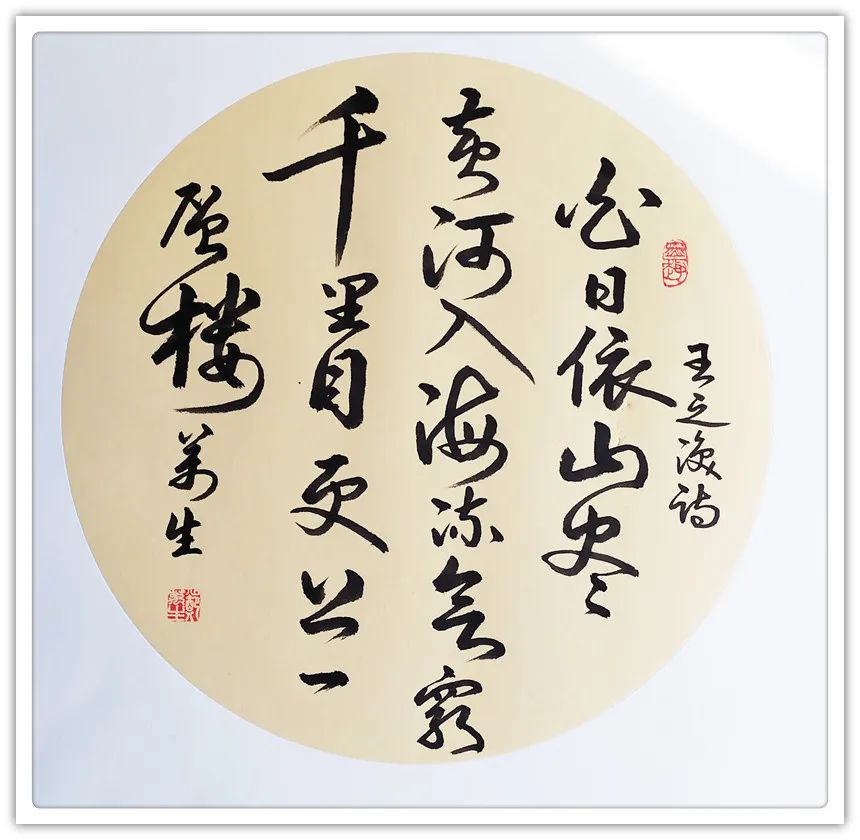 王之涣诗
白日依山尽
黄河入海流欲窮
千里目更上一
層楼萬生